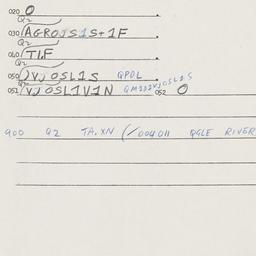 020 0
Q2
030 AGROJS1S+1F
Q2
040 TIF
Q2
050 JVJOSL1S QPDL
051 VJOSL1V1N QM232VJOSL1S 052 0
900 Q2 TA.XN (/004011 QGLE RIVER